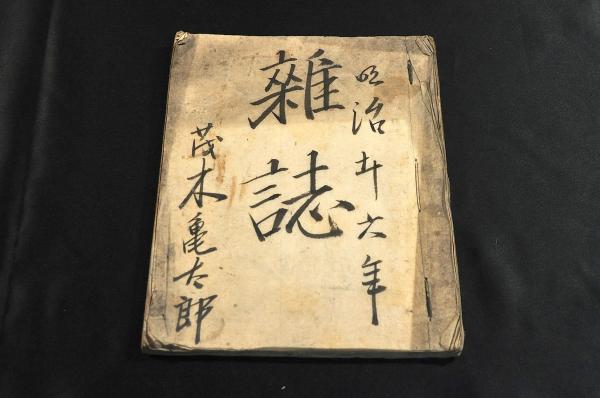 明治廿六年
雜誌
茂木亀太郎